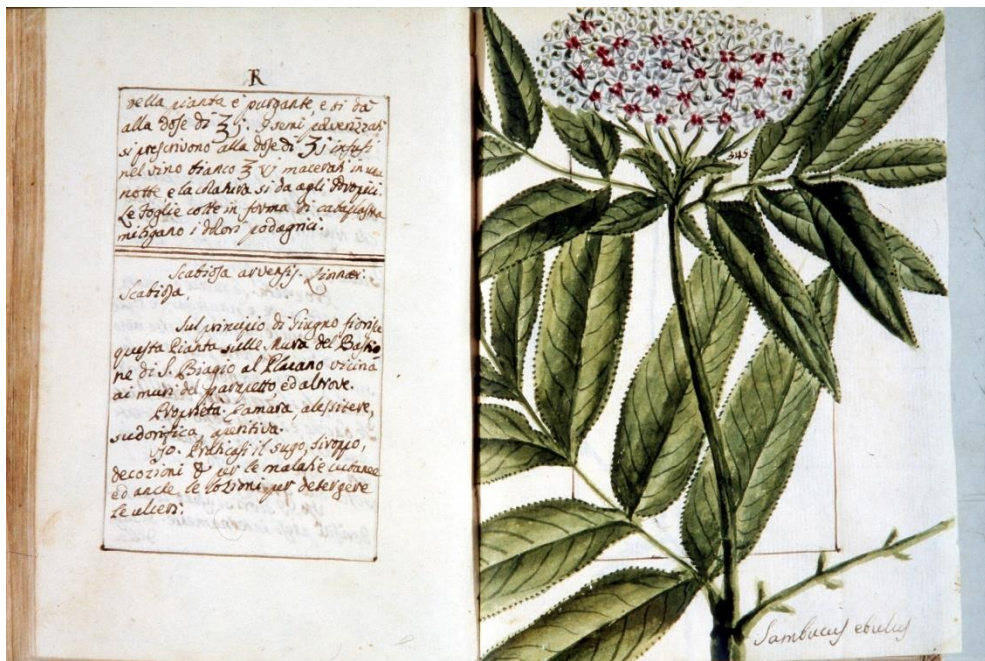 R
della pianta è purgante, e si dà
alla dose di ʒj. I semi polverizzati
si prescrivono alla dose di ʒj infusi
nel vino bianco ℥ v macerati in una
notte, e la colatura si da agli idropici.
Le Foglie cotte in forma di cataplasma
mitigano i dolori podagrici.
Scabiosa arvensis. Linnæi.
Scabiosa.
Sul principio di Giugno fiorisce
questa Pianta sulle Mura del Bastio
ne di S. Biagio al Placano vicina
ai muri del parzietto ed altrove.
Proprietà. È amara, alessitere,
sudorifica, aperitiva.
Uso. Praticasi il sugo, siroppo,
decozioni & per le malatie cutanee
ed anche le lozioni per detergere
le ulceri.
345
Sambucus ebulus